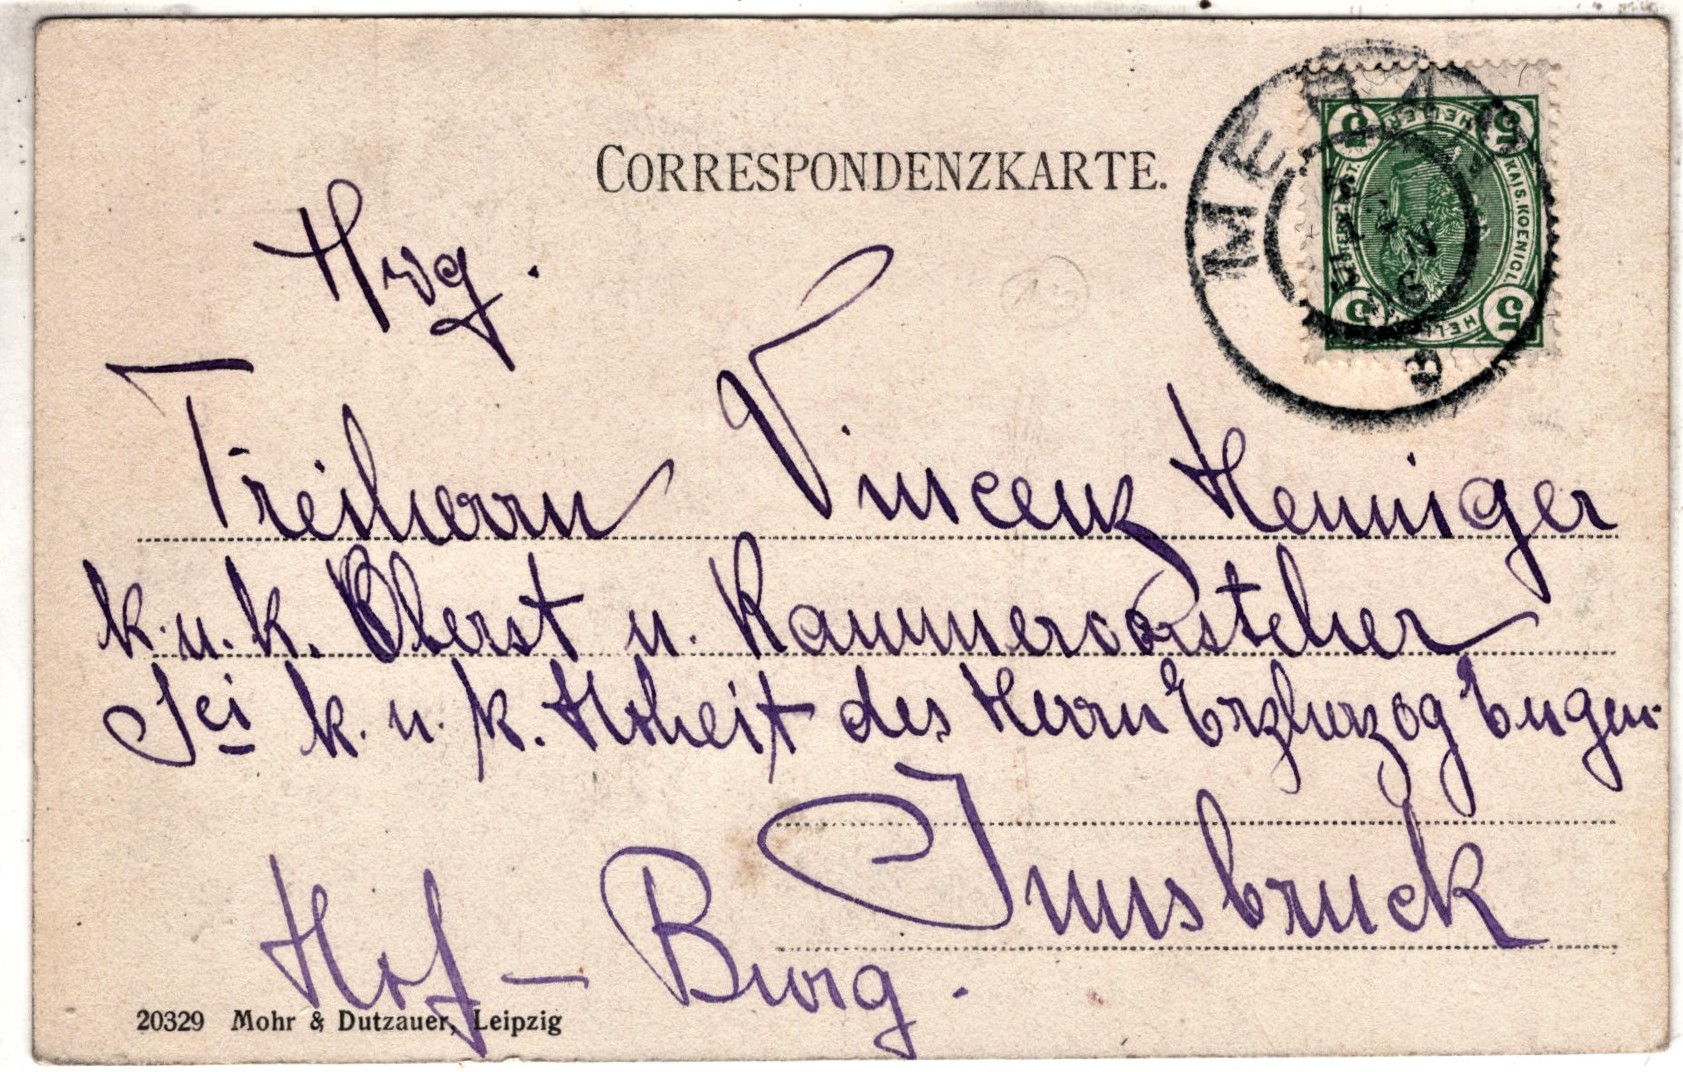 CORRESPONDENZKARTE.
MERAN
5 HELLER 5
KAIS. KOENIGL.
Freiherrn Vincenz Henniger
k. u. k. Oberst u. Kammervorsteher
Sei k. u. k. Hoheit des Herrn Erzherzog Eugen
Innsbruck
Hof – Burg.
20329 Mohr & Dutzauer, Leipzig